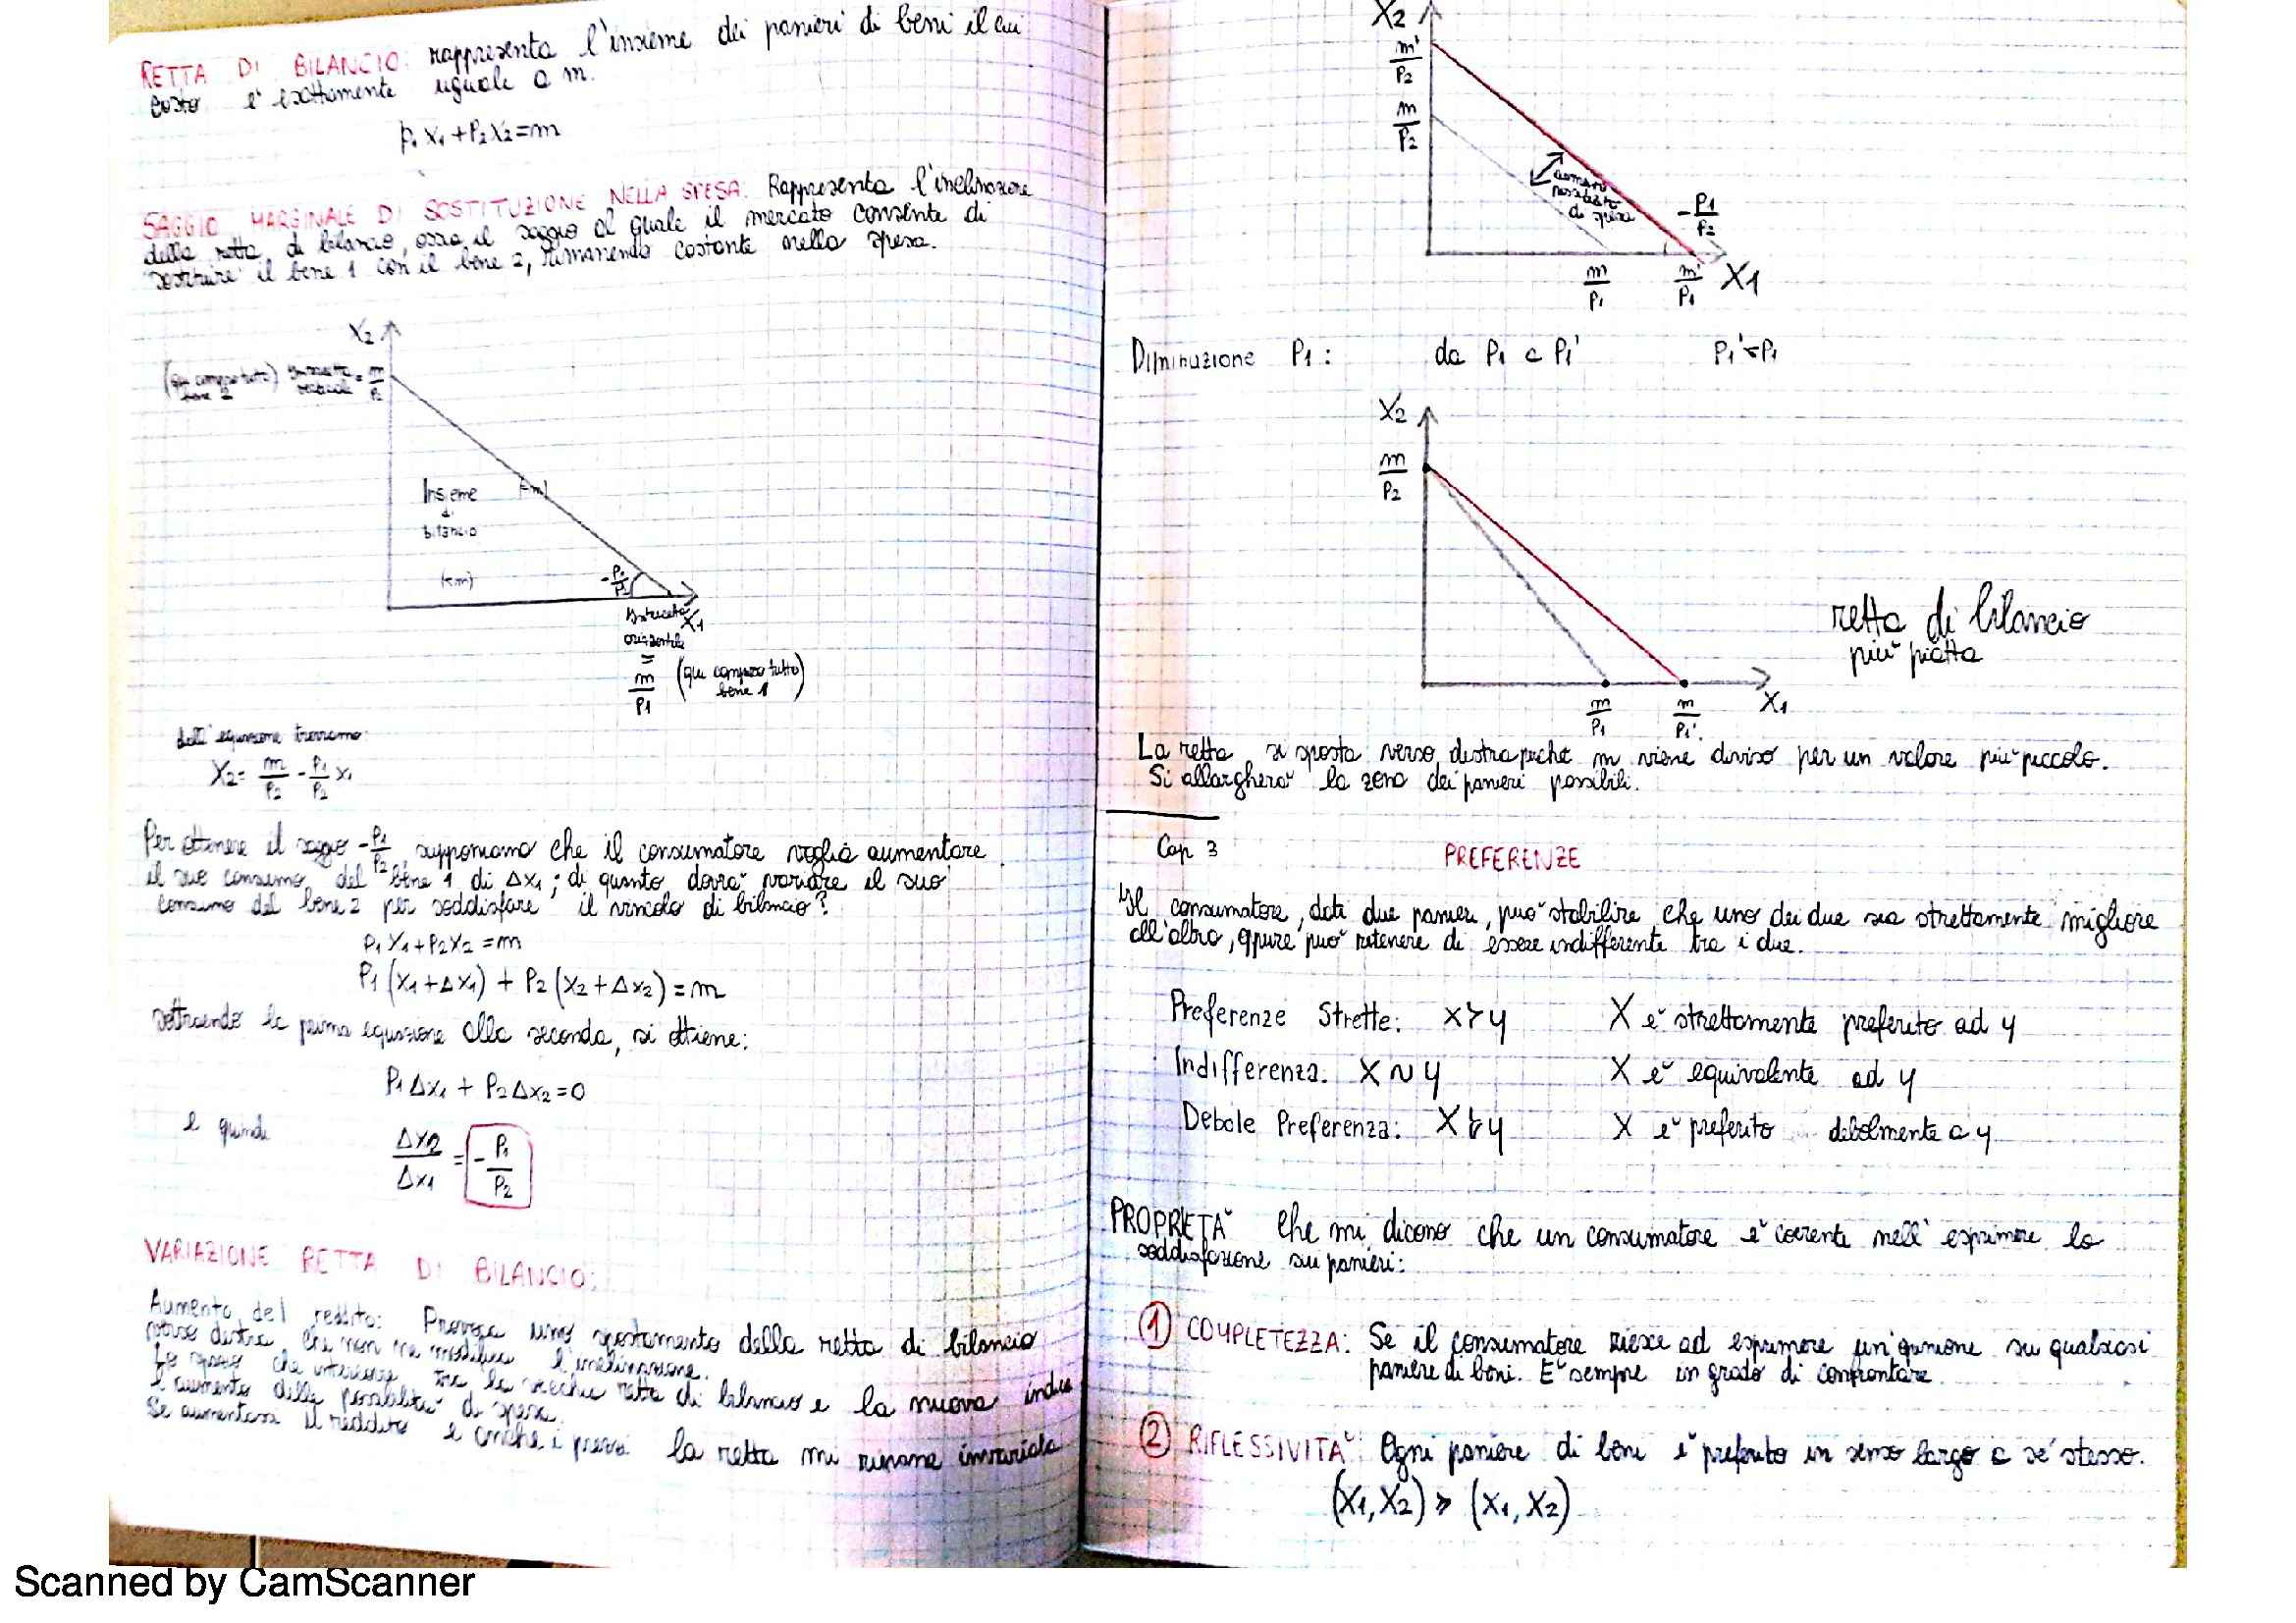 RETTA DI BILANCIO: rappresenta l'insieme dei panieri di beni il cui
costo e' esattamente uguale a m.
P1 X1 + P2 X2 = m
SAGGIO MARGINALE DI SOSTITUZIONE NELLA SPESA: Rappresenta l'inclinazione
della retta di bilancio, ossia il saggio al quale il mercato consente di
"sostituire" il bene 1 con il bene 2, rimanendo costante nella spesa.
X2
(qui compro tutto bene 2) Intercetta verticale = m/P2
Insieme di bilancio
(=m)
(≤m)
-P1/P2
X1
Intercetta orizzontale = m/P1
(qui compro tutto bene 1)
dall'equazione troviamo:
X2 = m/P2 - P1/P2 X1
Per ottenere il saggio -P1/P2, supponiamo che il consumatore voglia aumentare
il suo consumo del bene 1 di ΔX1; di quanto dovra' variare il suo
consumo del bene 2 per soddisfare il vincolo di bilancio?
P1 X1 + P2 X2 = m
P1 (X1 + ΔX1) + P2 (X2 + ΔX2) = m
sottraendo la prima equazione alla seconda, si ottiene:
P1 ΔX1 + P2 ΔX2 = 0
e quindi
ΔX2/ΔX1 = -P1/P2
VARIAZIONE RETTA DI BILANCIO:
Aumento del reddito: Provoca uno spostamento della retta di bilancio
verso destra che non ne modifica l'inclinazione.
Lo spazio che intercorre tra la vecchia retta di bilancio e la nuova indica
l'aumento delle possibilita' di spesa.
Se aumentassi il reddito e anche i prezzi la retta mi rimane invariata
X2
m'/P2
m/P2
aumento possibilita' di spesa
-P1/P2
m/P1
m'/P1
X1
Diminuzione P1: da P1 a P1' P1' < P1
X2
m/P2
m/P1
m/P1'
X1
retta di bilancio
piu' piatta
La retta si sposta verso destra perche' m viene diviso per un valore piu' piccolo.
Si allarghera' la zona dei panieri possibili.
Cap 3
PREFERENZE
Il consumatore, dati due panieri, puo' stabilire che uno dei due sia strettamente migliore
all'altro, oppure puo' ritenere di essere indifferente tra i due.
Preferenze Strette: X ≻ y X e' strettamente preferito ad y
Indifferenza: X ∼ y X e' equivalente ad y
Debole Preferenza: X ≽ y X e' preferito debolmente a y
PROPRIETA' Che mi dicono che un consumatore e' coerente nell'esprimere la
soddisfazione sui panieri:
① COMPLETEZZA: Se il consumatore riesce ad esprimere un'opinione su qualsiasi
paniere di beni. E' sempre in grado di confrontare
② RIFLESSIVITA': Ogni paniere di beni e' preferito in senso largo a se' stesso.
(X1, X2) ≽ (X1, X2)
Scanned by CamScanner